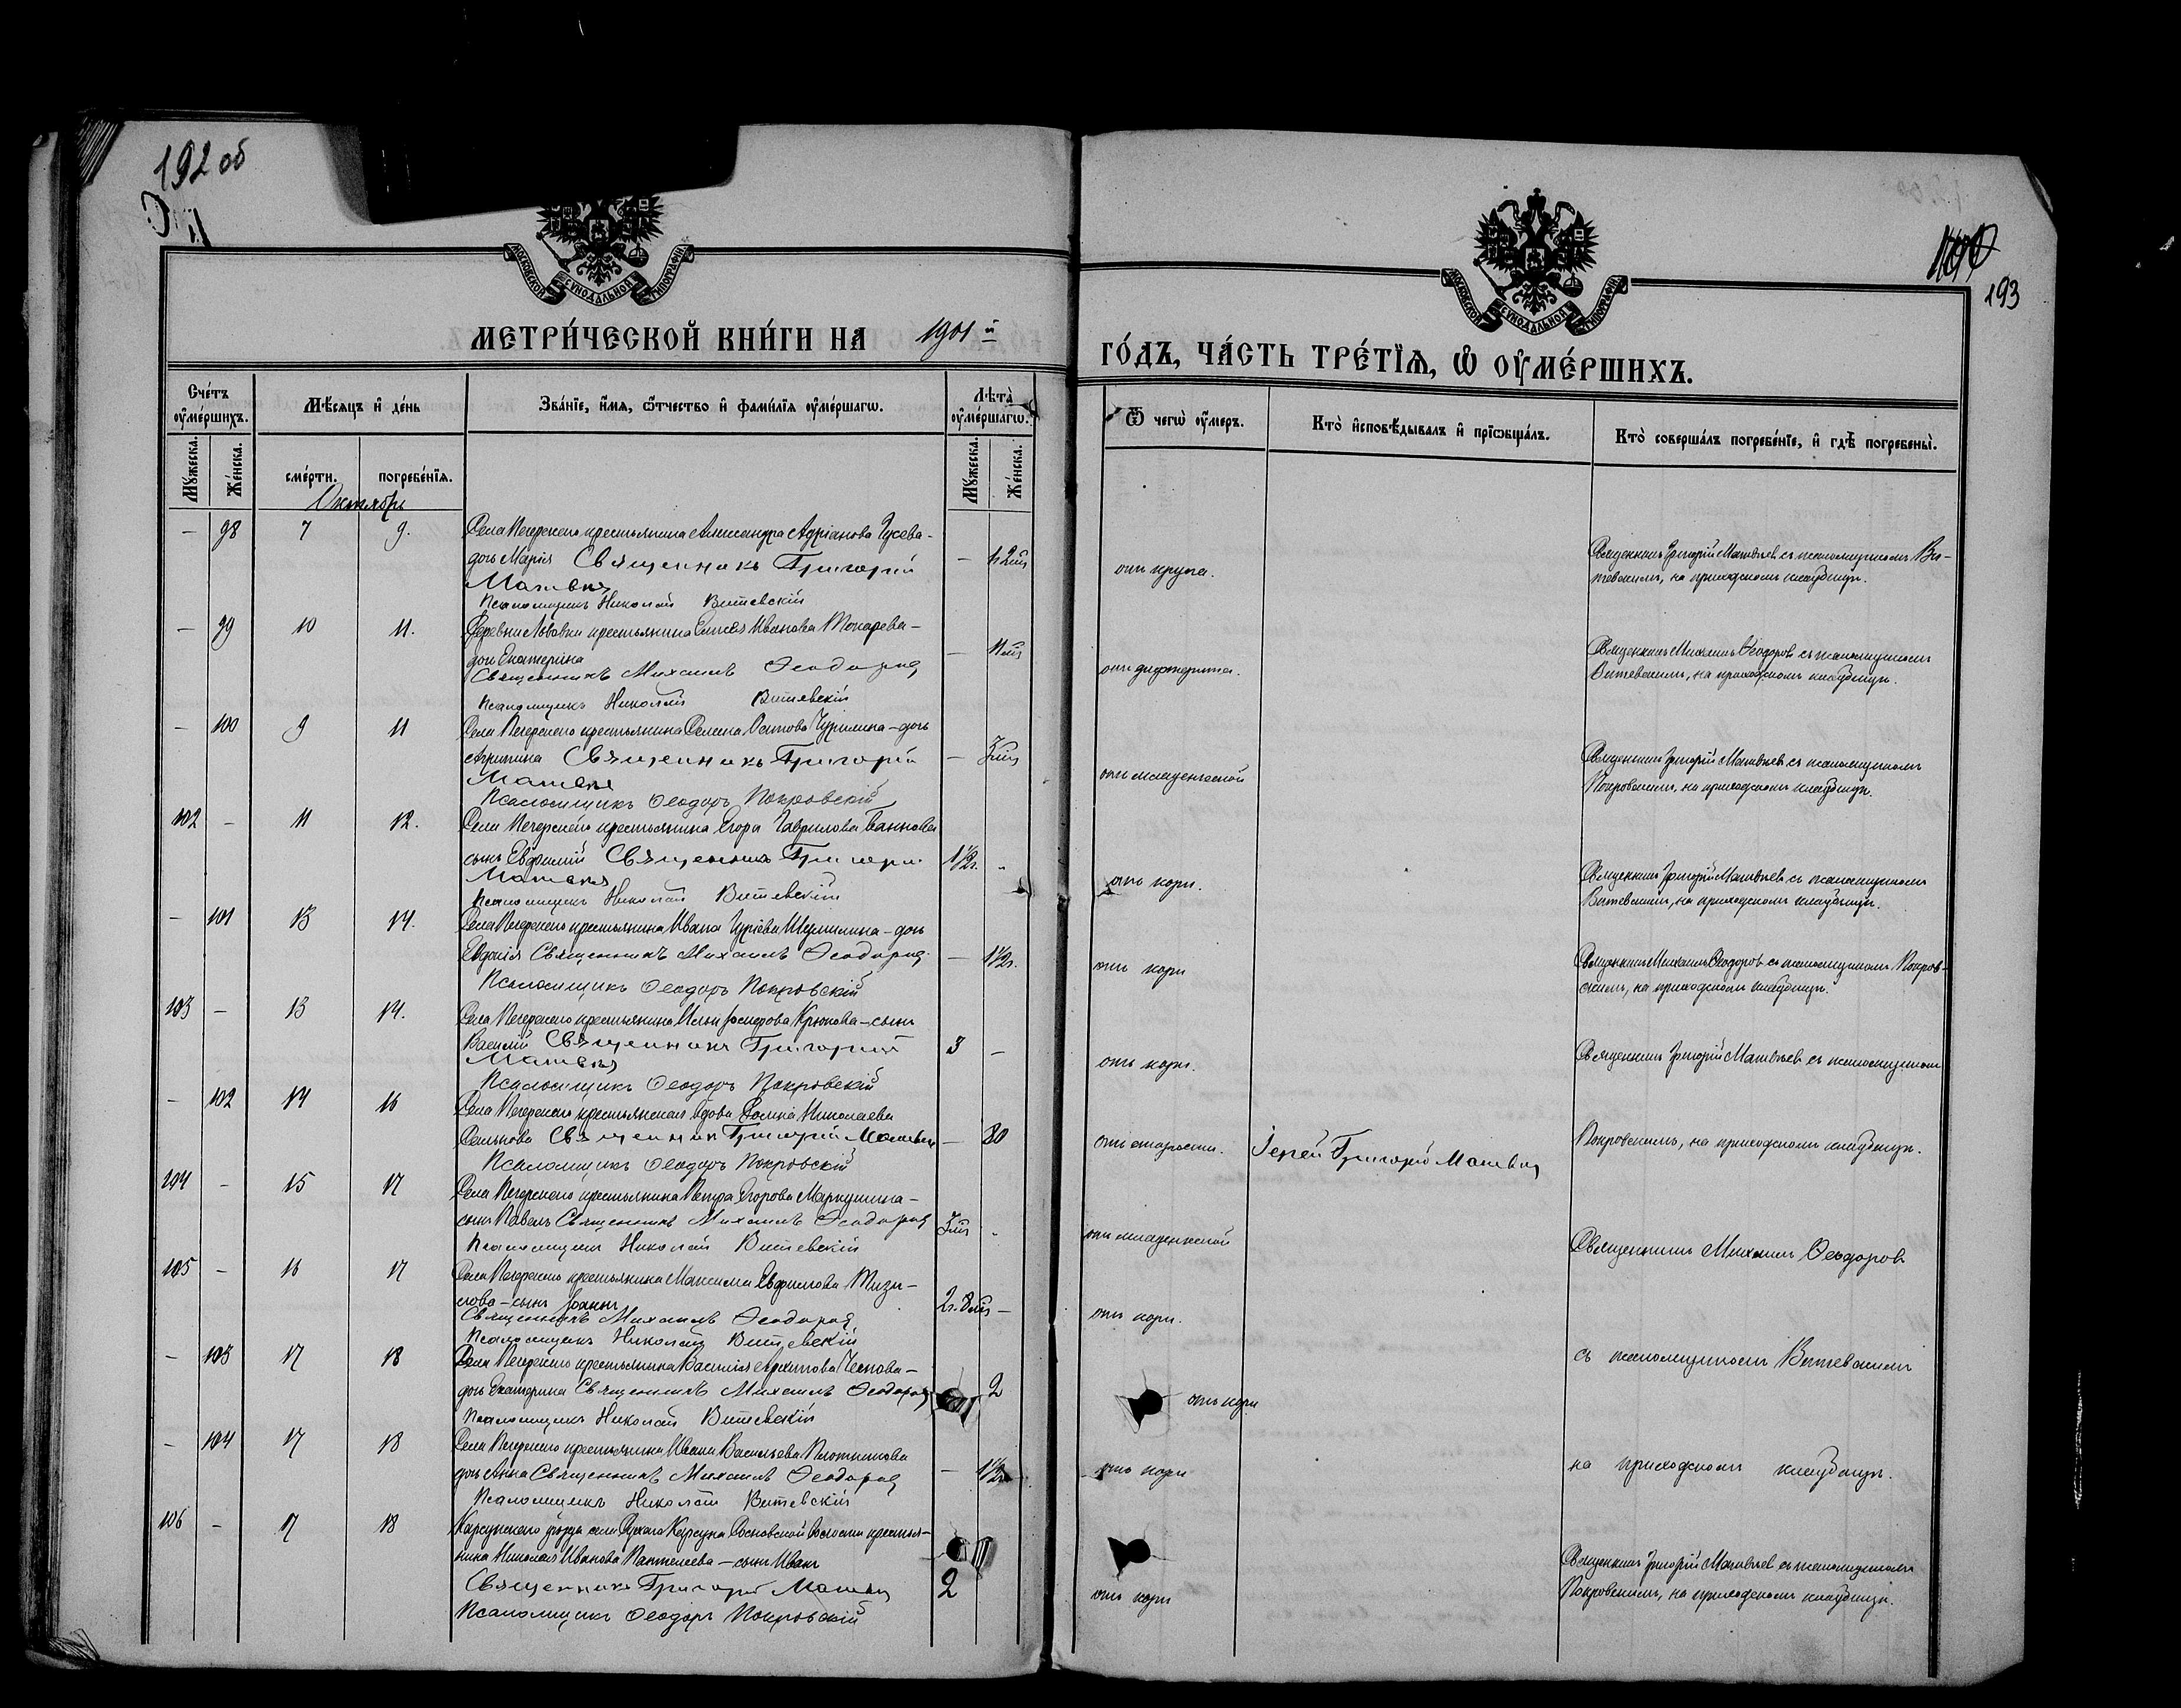 192 об
193
МОСКОВСКОЙ СѴНОДАЛЬНОЙ ТИПОГРАФІИ
МОСКОВСКОЙ СѴНОДАЛЬНОЙ ТИПОГРАФІИ
МЕТРИ́ЧЕСКОЙ КНИ́ГИ НА 1901 й
ГО́ДЪ, ЧА́СТЬ ТРЕ́ТІѦ, Ѡ҆ ОУ҆МЕ́РШИХЪ.
Сче́тъ оу҆ме́ршихъ.
Мѣ́сяцъ и҆ де́нь
Зва́нїе, и҆́мя, ѻ҆́тчество и҆ фами́лїя оу҆ме́ршагѡ.
Лѣ́та оу҆ме́ршагѡ.
Ѿ чегѡ̀ оу҆́меръ.
Кто̀ и҆сповѣ́дывалъ и҆ прїѡбща́лъ.
Кто̀ соверша́лъ погребе́нїе, и҆ гдѣ̀ погребены̀.
Мꙋ́жеска.
Же́нска.
сме́рти.
погребе́нїя.
Мꙋ́жеска.
Же́нска.
Октябрь
— 98 7 9. Села Печерскаго крестьянина Александра Адріанова Гусева -
дочь Марія Священникъ Григорій
Матвѣевъ
Псаломщикъ Николай Витевскій
— отъ крупа.
Священникъ Григорій Матвѣевъ съ псаломщикомъ Ви-
тевскимъ, на приходскомъ кладбищѣ.
— 99 10 11. Деревни Львовки крестьянина Елисея Иванова Токарева -
дочь Екатерина
Священникъ Михаилъ Ѳеодоровъ
Псаломщикъ Николай Витевскій
— отъ дифтерита.
Священникъ Михаилъ Ѳеодоровъ съ псаломщикомъ
Витевскимъ, на приходскомъ кладбищѣ.
— 100 9 11 Села Печерскаго крестьянина Осипова Чурилина - дочь
Агрипина Священникъ Григорій
Матвѣевъ
Псаломщикъ Ѳеодоръ Покровскій
— 3 мѣс отъ младенческой
Священникъ Григорій Матвѣевъ съ псаломщикомъ
Покровскимъ, на приходскомъ кладбищѣ.
102 — 11 12. Села Печерскаго крестьянина Егора Гаврилова
сынъ Евфимій Священникъ Григорій
Матвѣевъ
Псаломщикъ Николай Витевскій
1½ г. отъ кори.
Священникъ Григорій Матвѣевъ съ псаломщикомъ
Витевскимъ, на приходскомъ кладбищѣ.
— 101 13 14. Села Печерскаго крестьянина Ивана Гуріева Шумилина - дочь
Евдокія Священникъ Михаилъ Ѳеодоровъ
Псаломщикъ Ѳеодоръ Покровскій
— 1½ г. отъ кори
Священникъ Михаилъ Ѳеодоровъ съ псаломщикомъ Покров-
скимъ, на приходскомъ кладбищѣ.
103 — 13 14. Села Печерскаго крестьянина Ильи Крюкова - сынъ
Василій Священникъ Григорій
Матвѣевъ
Псаломщикъ Ѳеодоръ Покровскій
3 — отъ кори.
Священникъ Григорій Матвѣевъ съ псаломщикомъ
— 102 14 16 Села Печерскаго крестьянская вдова Николаева
Священникъ Григорій Матвѣевъ
Псаломщикъ Ѳеодоръ Покровскій
— 80 отъ старости. Іерей Григорій Матвѣевъ
Покровскимъ, на приходскомъ кладбищѣ.
104 — 15 17 Села Печерскаго крестьянина Петра Егорова Маркушина -
сынъ Павелъ Священникъ Михаилъ Ѳеодоровъ
Псаломщикъ Николай Витевскій
3 мѣс отъ младенческой
Священникъ Михаилъ Ѳеодоровъ
105 — 16 17 Села Печерскаго крестьянина Максима Евфимова
- сынъ Іоаннъ
Священникъ Михаилъ Ѳеодоровъ
Псаломщикъ Николай Витевскій
2 г. 8 мѣс — отъ кори.
съ псаломщикомъ Витевскимъ
— 103 17 18 Села Печерскаго крестьянина Василія Архипова -
дочь Екатерина Священникъ Михаилъ Ѳеодоровъ
Псаломщикъ Николай Витевскій
2 отъ кори
— 104 17 18 Села Печерскаго крестьянина Ивана Васильева Плотникова
дочь Анна Священникъ Михаилъ Ѳеодоровъ
Псаломщикъ Николай Витевскій
— 1½ отъ кори
на приходскомъ кладбищѣ.
106 — 17 18 Карсунскаго уѣзда села Русскаго Карсуна Сосновской волости крестья-
нина Николая Иванова Пантелеева - сынъ Иванъ
Священникъ Григорій Матвѣевъ
Псаломщикъ Ѳеодоръ Покровскій
2 отъ кори
Священникъ Григорій Матвѣевъ съ псаломщикомъ
Покровскимъ, на приходскомъ кладбищѣ.